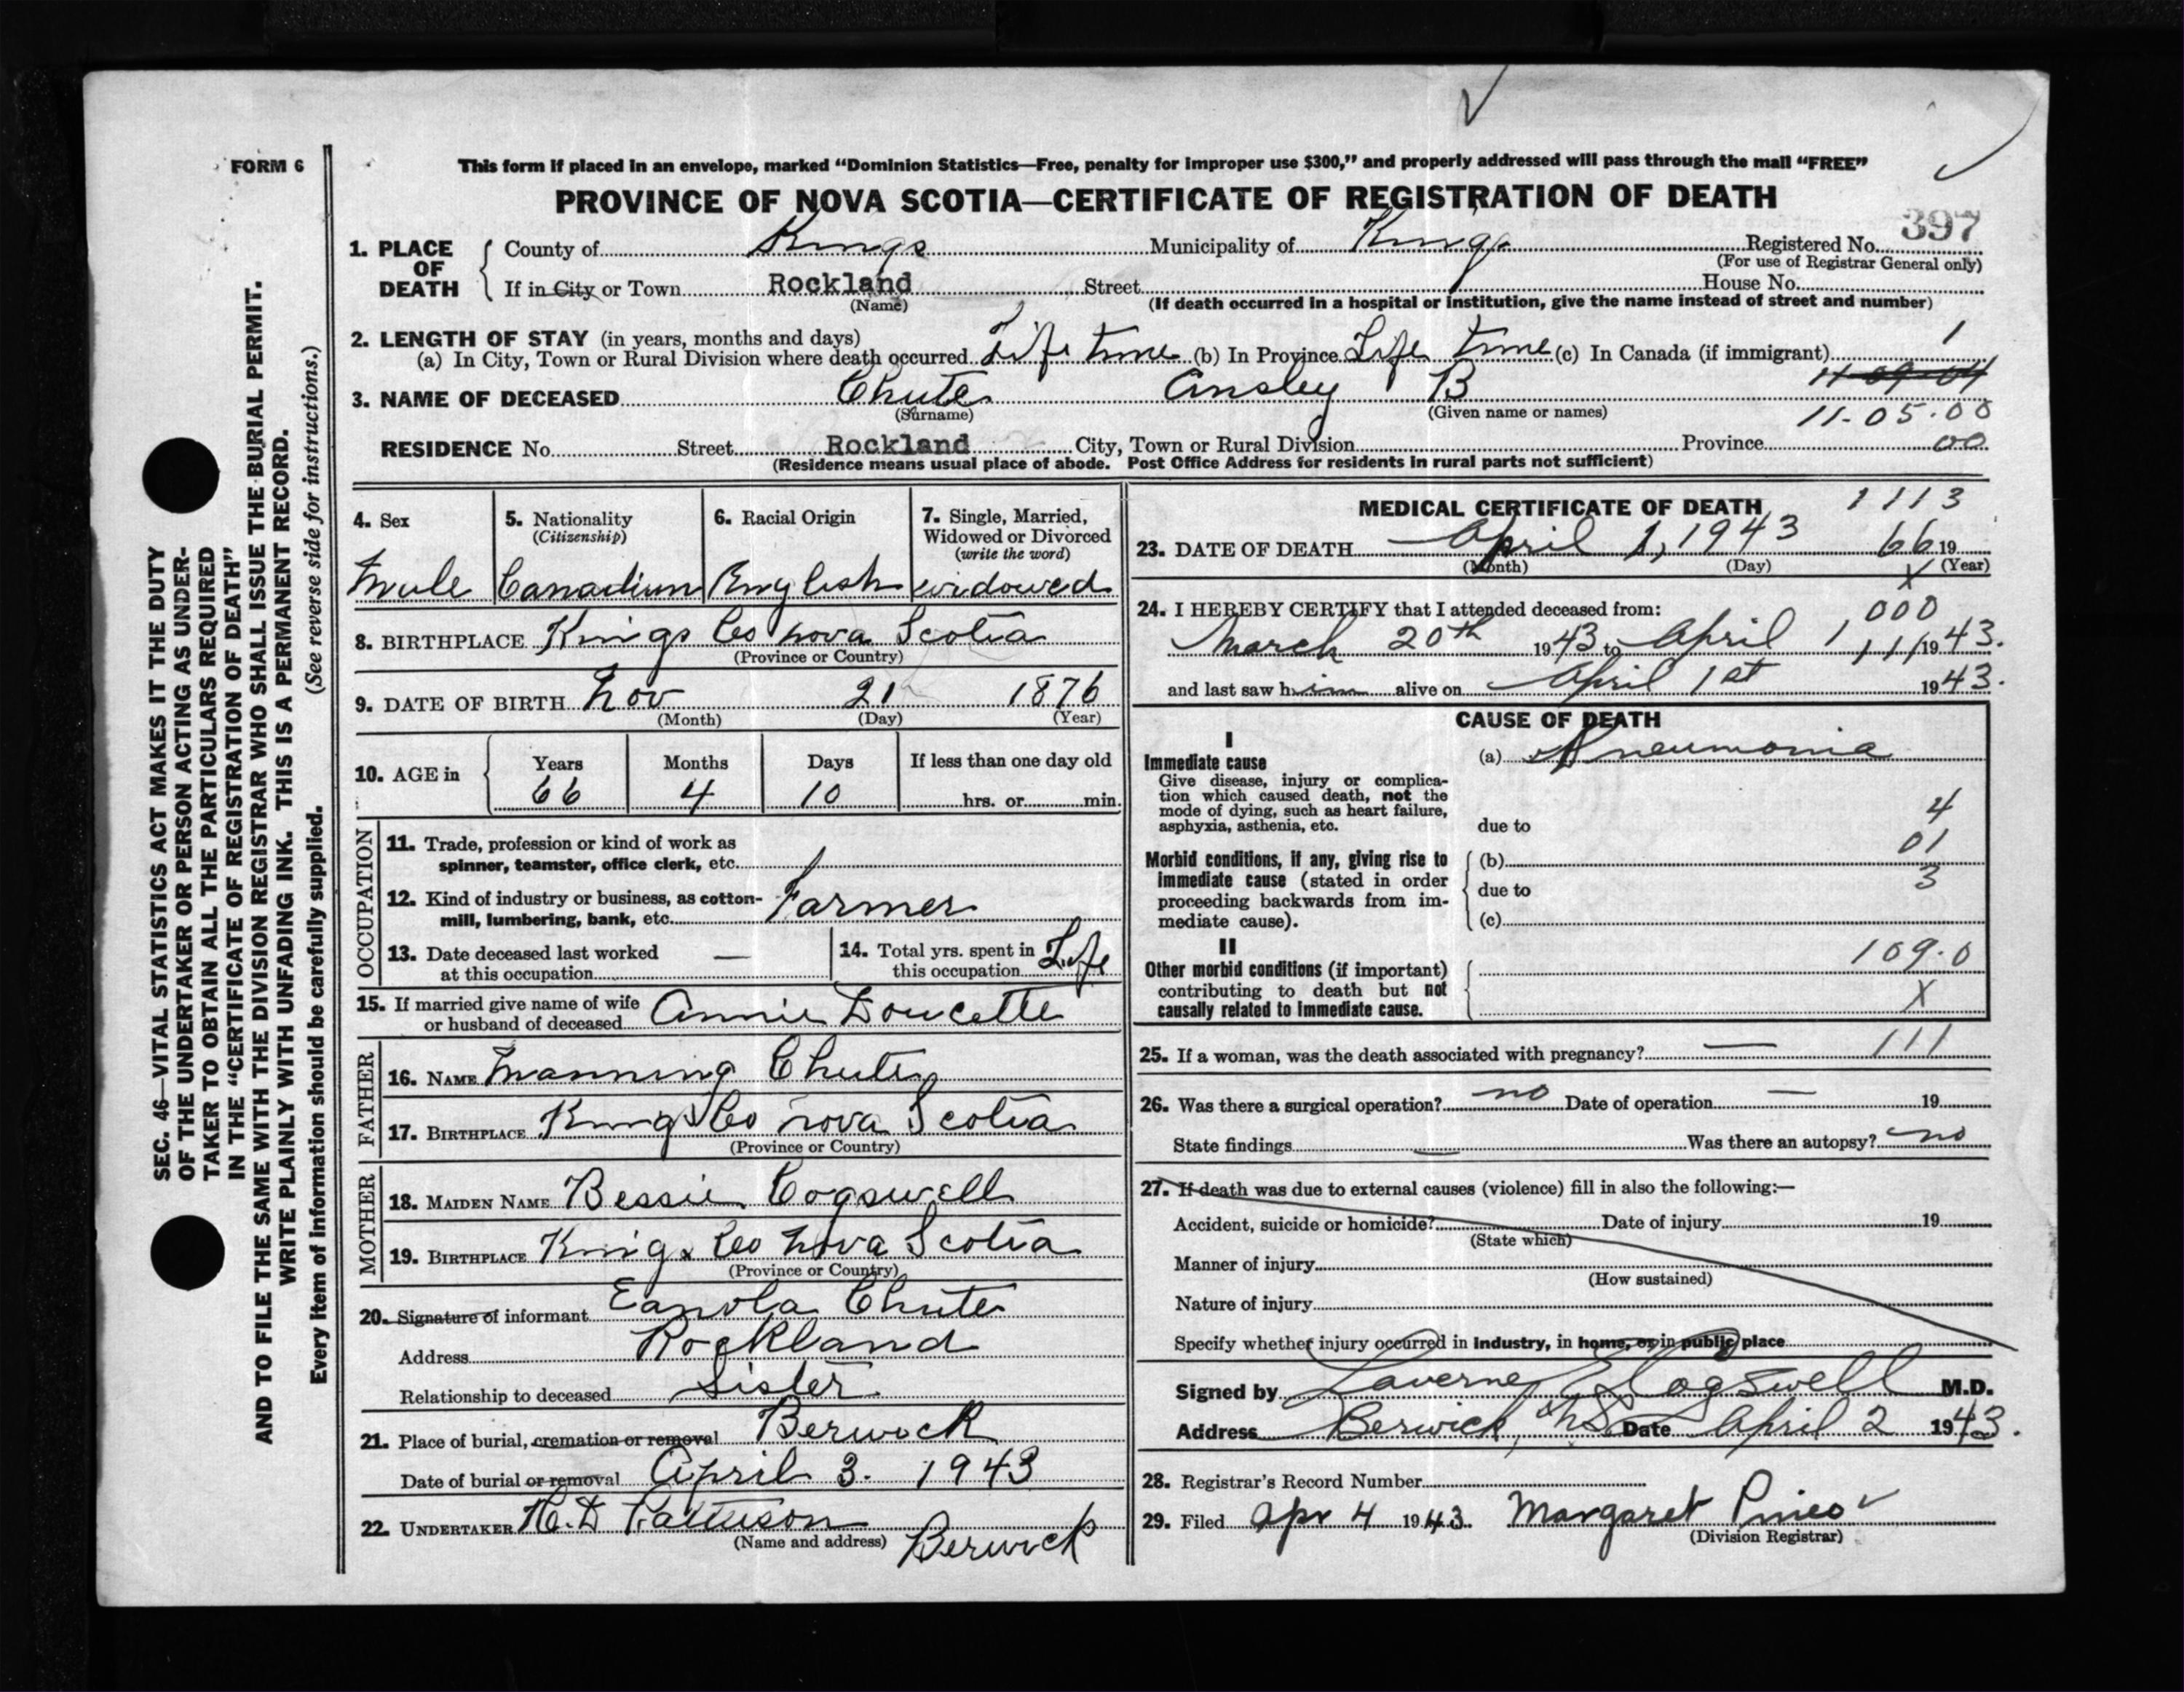 FORM 6
This form if placed in an envelope, marked “Dominion Statistics—Free, penalty for improper use $300,” and properly addressed will pass through the mail “FREE”
PROVINCE OF NOVA SCOTIA—CERTIFICATE OF REGISTRATION OF DEATH
397
1. PLACE OF DEATH County of Kings Municipality of Kings Registered No.
(For use of Registrar General only)
If in City or Town Rockland Street House No.
(Name) (If death occurred in a hospital or institution, give the name instead of street and number)
2. LENGTH OF STAY (in years, months and days) 1
(a) In City, Town or Rural Division where death occurred Life time (b) In Province Life time (c) In Canada (if immigrant)
11-09-04
3. NAME OF DECEASED Chute Ansley B
(Surname) (Given name or names) 11-05.00
RESIDENCE No. Street Rockland City, Town or Rural Division Province 00
(Residence means usual place of abode. Post Office Address for residents in rural parts not sufficient)
4. Sex
Male
5. Nationality
(Citizenship)
Canadian
6. Racial Origin
English
7. Single, Married,
Widowed or Divorced
(write the word)
widowed
8. BIRTHPLACE Kings Co Nova Scotia
(Province or Country)
9. DATE OF BIRTH Nov 21 1876
(Month) (Day) (Year)
10. AGE in Years Months Days If less than one day old
66 4 10 hrs. or min.
OCCUPATION
11. Trade, profession or kind of work as
spinner, teamster, office clerk, etc.
12. Kind of industry or business, as cotton-
mill, lumbering, bank, etc. Farmer
13. Date deceased last worked
at this occupation —
14. Total yrs. spent in
this occupation Life
15. If married give name of wife
or husband of deceased Annie Doucette
FATHER
16. NAME Manning Chute
17. BIRTHPLACE Kings Co Nova Scotia
(Province or Country)
MOTHER
18. MAIDEN NAME Bessie Cogswell
19. BIRTHPLACE Kings Co Nova Scotia
(Province or Country)
20. Signature of informant Chute
Address Rockland
Relationship to deceased Sister
21. Place of burial, cremation or removal Berwick
Date of burial or removal April 3. 1943
22. UNDERTAKER Berwick
(Name and address)
MEDICAL CERTIFICATE OF DEATH 1113
23. DATE OF DEATH April 1, 1943 66 19
(Month) (Day) (Year)
X
24. I HEREBY CERTIFY that I attended deceased from: 000
March 20th 1943 to April 1 111 1943.
and last saw him alive on April 1st 1943.
CAUSE OF DEATH
I
Immediate cause (a) Pneumonia
Give disease, injury or complica-
tion which caused death, not the
mode of dying, such as heart failure,
asphyxia, asthenia, etc. due to 4
01
Morbid conditions, if any, giving rise to (b)
immediate cause (stated in order due to 3
proceeding backwards from im-
mediate cause). (c)
II 109.0
Other morbid conditions (if important)
contributing to death but not X
causally related to immediate cause.
25. If a woman, was the death associated with pregnancy? — 111
26. Was there a surgical operation? no Date of operation — 19
State findings — Was there an autopsy? no
27. If death was due to external causes (violence) fill in also the following:—
Accident, suicide or homicide? Date of injury 19
(State which)
Manner of injury
(How sustained)
Nature of injury
Specify whether injury occurred in industry, in home, or in public place
Signed by Laverne Cogswell M.D.
Address Berwick, N.S. Date April 2 1943.
28. Registrar's Record Number
29. Filed Apr 4 1943. Margaret Pineo
(Division Registrar)
SEC. 46—VITAL STATISTICS ACT MAKES IT THE DUTY
OF THE UNDERTAKER OR PERSON ACTING AS UNDER-
TAKER TO OBTAIN ALL THE PARTICULARS REQUIRED
IN THE “CERTIFICATE OF REGISTRATION OF DEATH”
AND TO FILE THE SAME WITH THE DIVISION REGISTRAR WHO SHALL ISSUE THE BURIAL PERMIT.
WRITE PLAINLY WITH UNFADING INK. THIS IS A PERMANENT RECORD.
Every item of information should be carefully supplied. (See reverse side for instructions.)